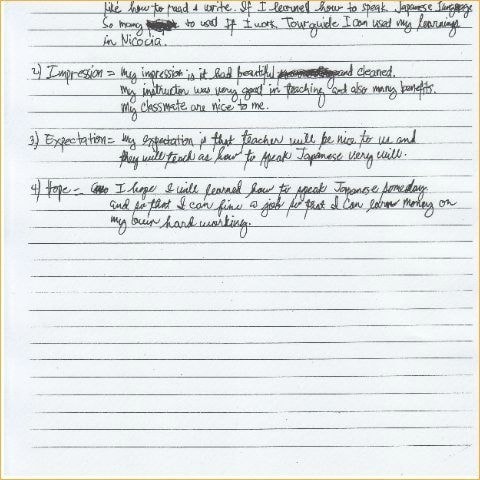 like how to read & write. If I learned how to speak Japanese language
So many to used if I work Tourguide I can used my learnings
in Nicocia.
2) Impression = my impression is it had beautiful and cleaned.
my instructor was very good in teaching and also many benefits.
my classmate are nice to me.
3) Expectation = my expectation is that teacher will be nice to us and
they will teach as how to speak Japanese very will.
4) Hope - I hope I will learned how to speak Japanese someday
and so that I can fine a job so that I can earn money on
my own hard working.